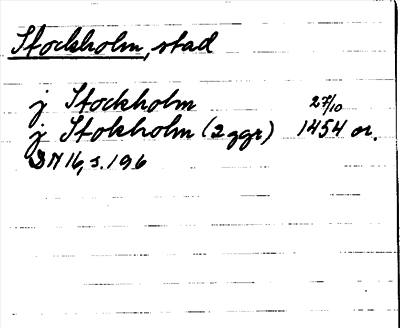 Stockholm, stad
j Stockholm 27/10
j Stokholm (2 ggr) 1454 or.
DN 16, s. 196